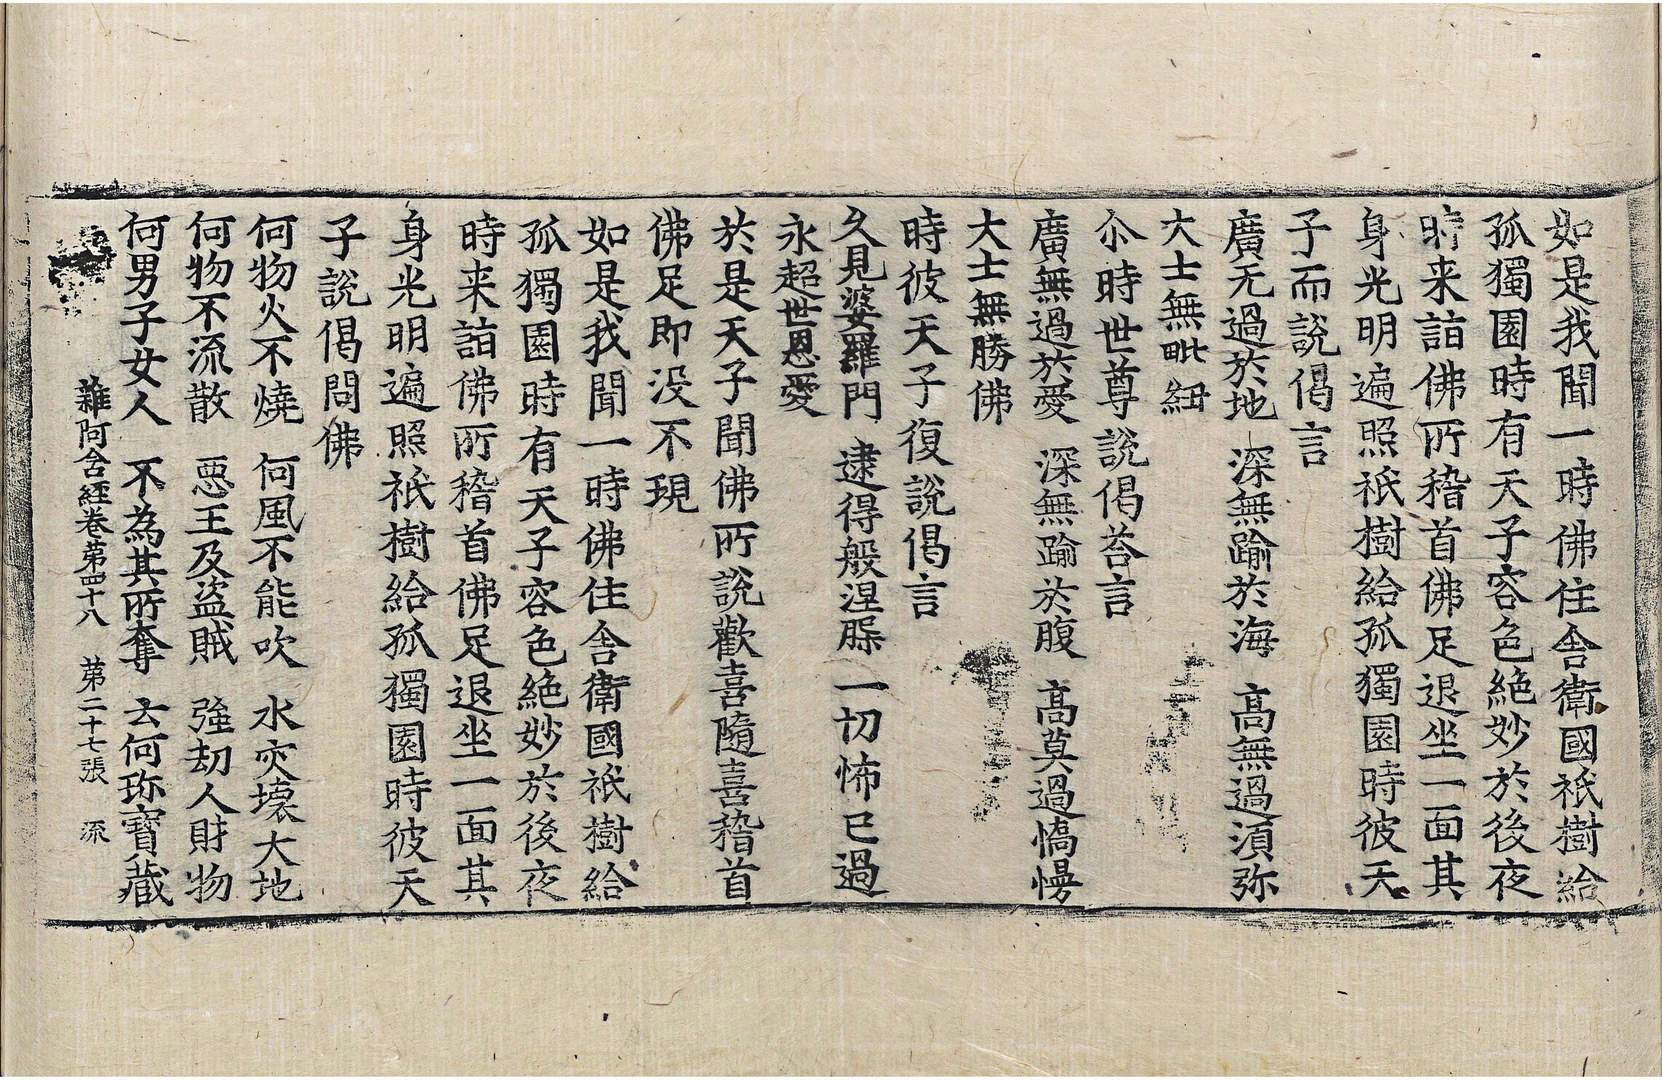 如是我聞一時佛住舎衛國祇樹給
孤獨園時有天子容色絶妙於後夜
時来詣佛所稽首佛足退坐一面其
身光明遍照祇樹給孤獨園時彼天
子而說偈言
廣无過於地　深無踰於海　高無過湏弥
大士無毗紐
尒時世尊說偈荅言
廣無過於愛　深無踰於腹　高莫過憍慢
大士無勝佛
時彼天子復說偈言
久見婆羅門　逮得般涅槃　一切怖已過
永超世恩愛
於是天子聞佛所說歡喜隨喜稽首
佛足即没不現
如是我聞一時佛住舎衛國祇樹給
孤獨園時有天子容色絶妙於後夜
時来詣佛所稽首佛足退坐一面其
身光明遍照祇樹給孤獨園時彼天
子說偈問佛
何物火不燒　何風不能吹　水灾壊大地
何物不流散　惡王及盜賊　強劫人財物
何男子女人　不為其所奪　云何珎寶藏
雜阿含經卷苐四十八　苐二十七張　流